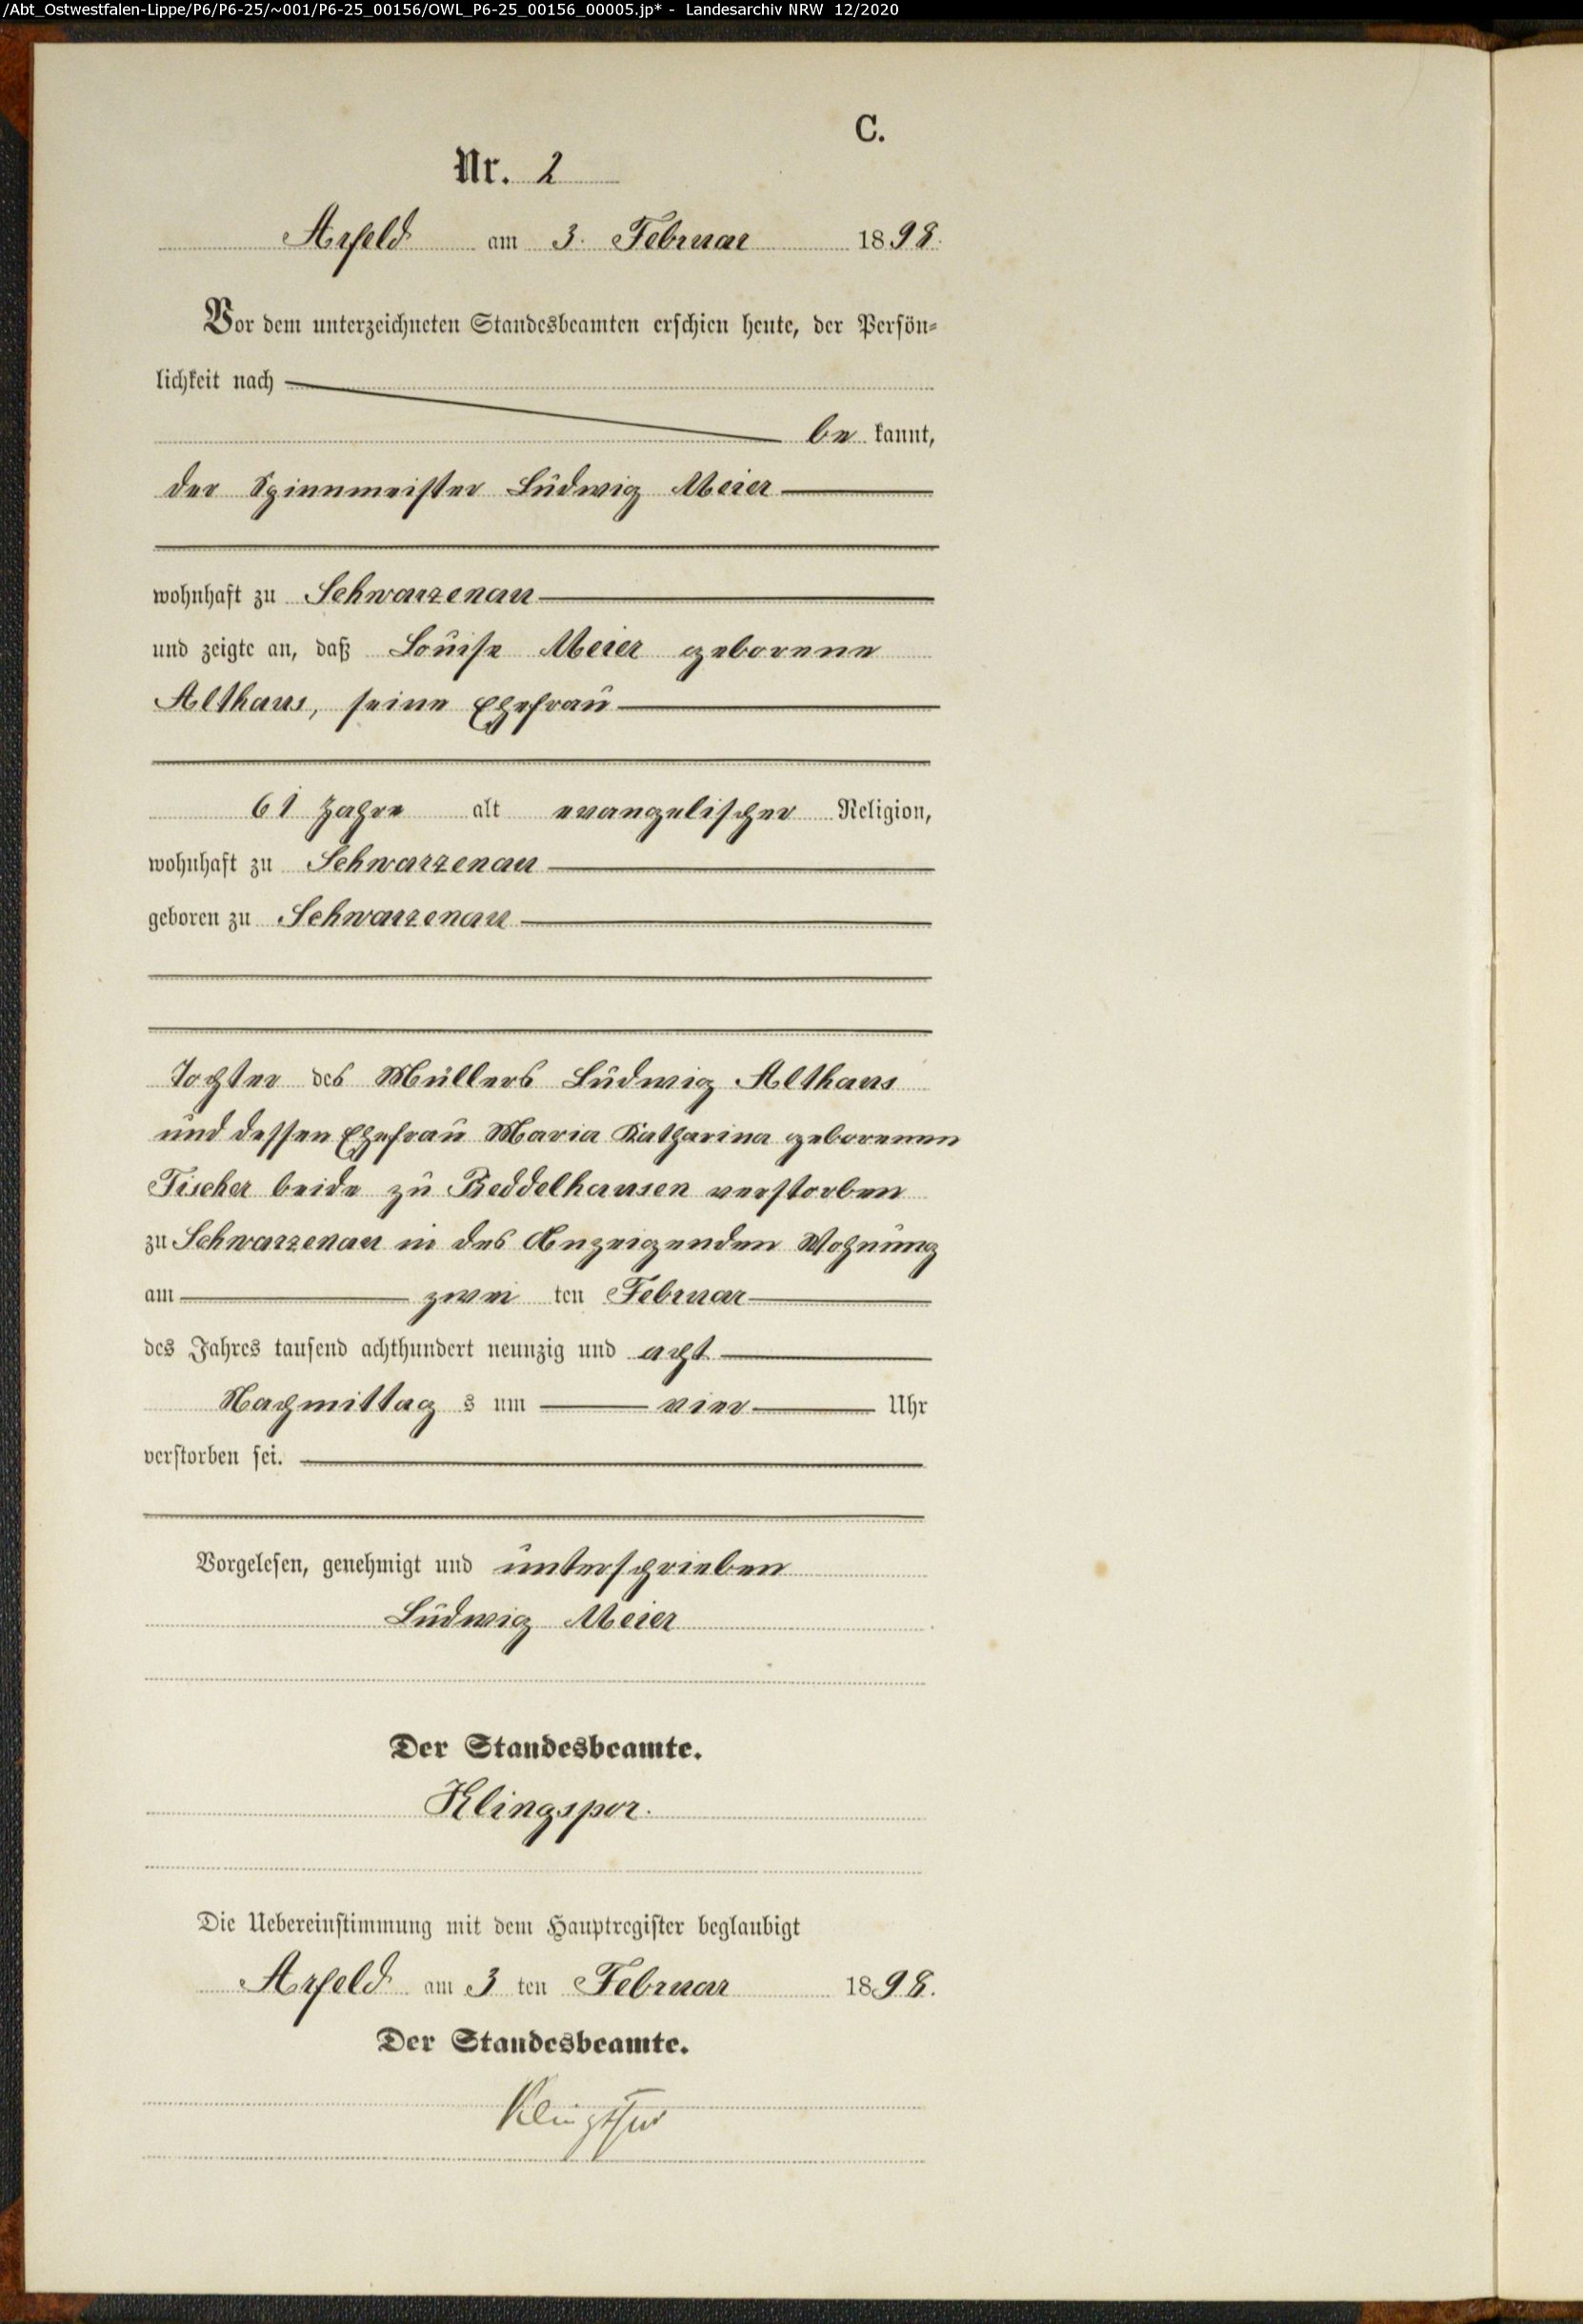 /Abt_Ostwestfalen-Lippe/P6/P6-25/~001/P6-25_00156/OWL_P6-25_00156_00005.jp* - Landesarchiv NRW 12/2020
C.
Nr. 2
Arfeld am 3. Februar 1898.
Vor dem unterzeichneten Standesbeamten erschien heute, der Persön-
lichkeit nach
be kannt,
der Spinnmeister Ludwig Meier
wohnhaft zu Schwarzenau
und zeigte an, daß Louise Meier geborene
Althaus, seine Ehefrau
61 Jahre alt evangelischer Religion,
wohnhaft zu Schwarzenau
geboren zu Schwarzenau
Tochter des Müllers Ludwig Althaus
und dessen Ehefrau Maria Katharina geborenen
Fischer beide zu Beddelhausen verstorben
zu Schwarzenau in des Anzeigenden Wohnung
am zwei ten Februar
des Jahres tausend achthundert neunzig und acht
Nachmittag s um vier Uhr
verstorben sei.
Vorgelesen, genehmigt und unterschrieben
Ludwig Meier
Der Standesbeamte.
Klingspor.
Die Uebereinstimmung mit dem Hauptregister beglaubigt
Arfeld am 3 ten Februar 1898.
Der Standesbeamte.
Klingspor